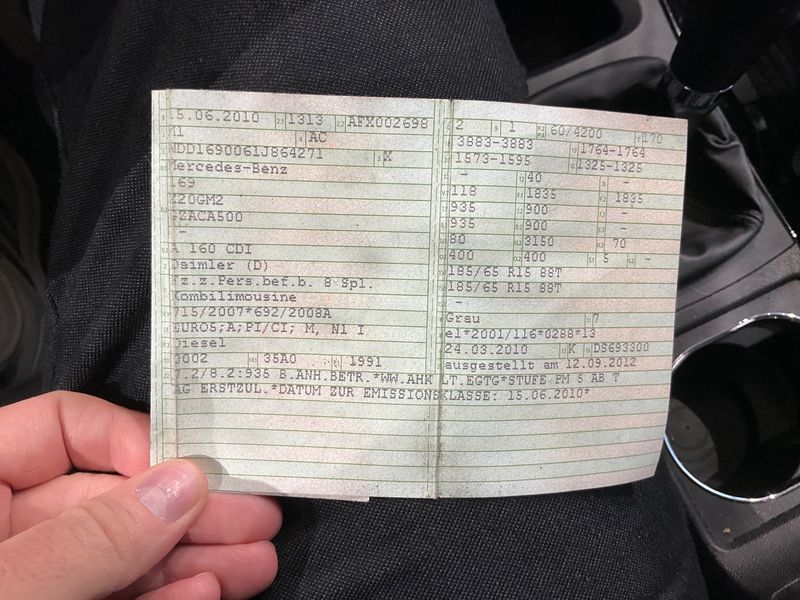 15.06.2010 1313 AFX002698
M1 AC
WDD1690061J864271 X
Mercedes-Benz
169
X20GM2
GZACA500
-
A 160 CDI
Daimler (D)
Fz.z.Pers.bef.b. 8 Spl.
Kombilimousine
715/2007*692/2008A
EURO5;A;PI/CI; M, N1 I
Diesel
0002 35A0 1991
7.2/8.2:935 B.ANH.BETR.*WW.AHK LT.EGTG*STUFE PM 5 AB T
AG ERSTZUL.*DATUM ZUR EMISSIONSKLASSE: 15.06.2010*
2 1 60/4200 170
3883-3883 1764-1764
1573-1595 1325-1325
- 40 -
118 1835 1835
935 900 -
935 900 -
80 3150 70
400 400 5 -
185/65 R15 88T
185/65 R15 88T
-
Grau 7
e1*2001/116*0288*13
24.03.2010 K DS693300
ausgestellt am 12.09.2012